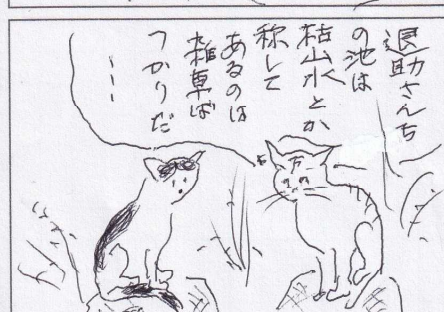 退助さんち
の池は
枯山水とか
称して
あるのは
雑草ば
つかりだ
---